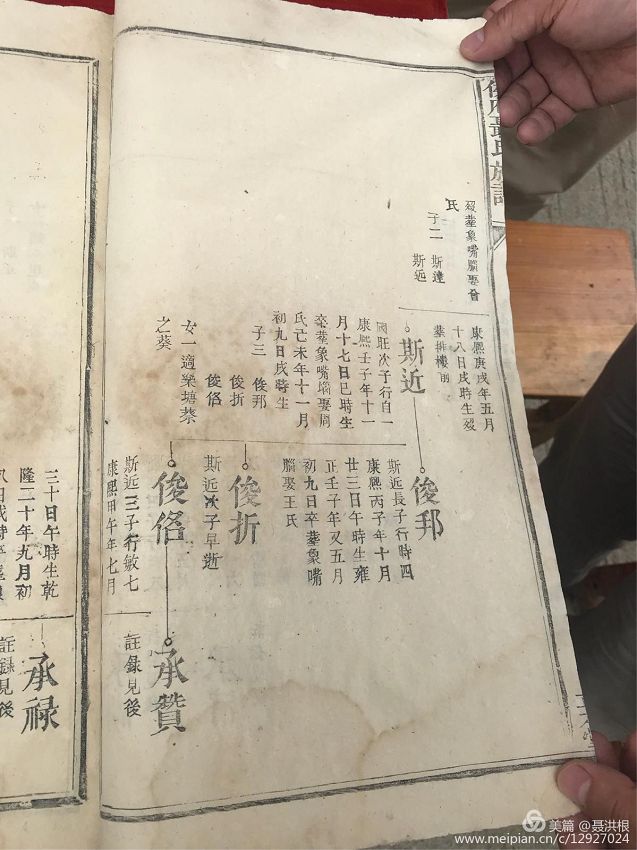 聶氏族譜
歿葬象嘴腦娶曾
氏
子二 斯達
斯近
康熙庚戌年五月
十八日戌時生歿
葬排樓前
斯近
國旺次子行自一
康熙壬子年十一
月十七日巳時生
葬象嘴墈娶周
氏己未年十一月
初九日戌時生
子三 俊邦
俊折
俊佫
女一適樂塘蔡
之葵
俊邦
斯近長子行時四
康熙丙子年十月
廿三日午時生雍
正壬子年又五月
初九日卒葬象嘴
腦娶王氏
俊折
斯近次子早逝
俊佫
斯近三子行敏七
康熙甲午年七月
承贊
註録見後
三十日午時生乾
隆二十年九月初
承禄
註録見後
美篇 @聂洪根
www.meipian.cn/c/12927024